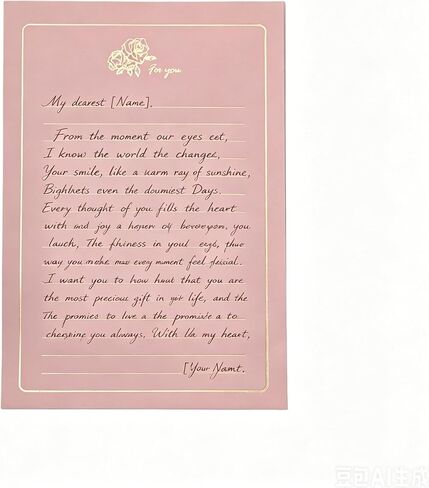 For you
My dearest [Name].
From the moment our eyes eet,
I know the world the changes,
Your smile, like a uarm ray of sunshine,
Bighhets even the doumiest Days.
Every thought of you fills the heart
with and joy a of you
lauch, The fhiness in youl
way you make every moment feel
I want you to how that you are
the most precious gift in your life, and the
The promies to live a the promide a to
you always. With my heart,
[Your Namt.
豆包AI生成